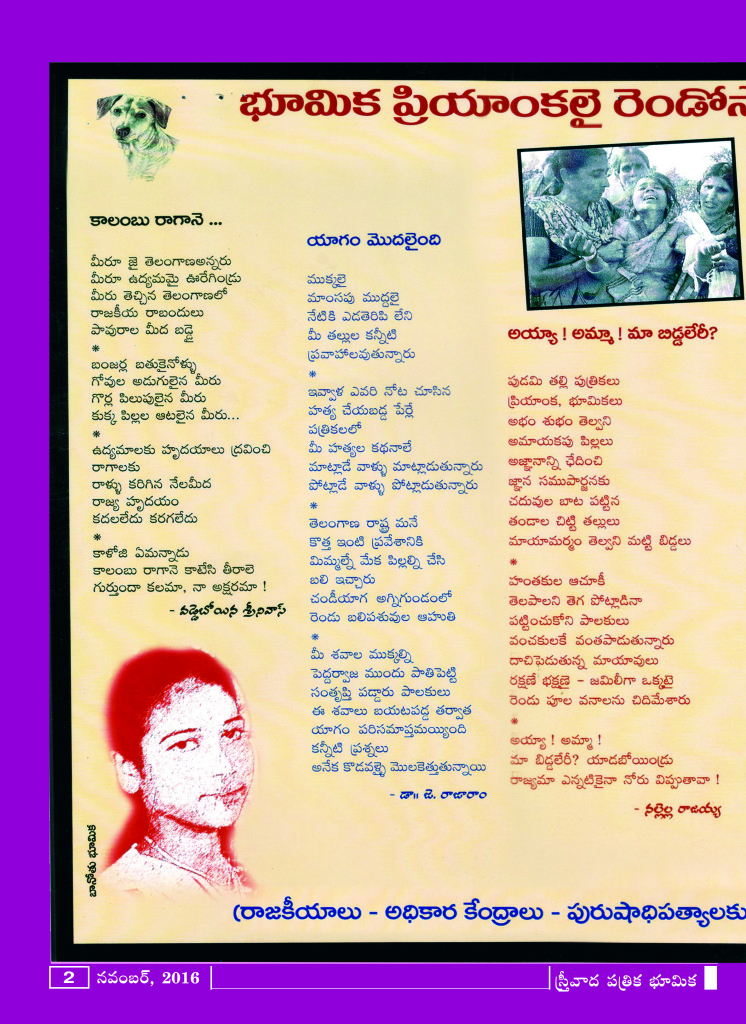 భూమిక ప్రియాంకలై రెండో
కాలంబు రాగానె ...
మీరూ జై తెలంగాణఅన్నరు
మీరూ ఉద్యమమై ఊరేగిండ్రు
మీరు తెచ్చిన తెలంగాణలో
రాజకీయ రాబందులు
పావురాల మీద బడ్డై
*
బంజర్ల బతుకైనోళ్ళు
గోవుల అడుగులైన మీరు
గొర్ల పిలుపులైన మీరు
కుక్క పిల్లల ఆటలైన మీరు...
*
ఉద్యమాలకు హృదయాలు ద్రవించి
రాగాలకు
రాళ్ళు కరిగిన నేలమీద
రాజ్య హృదయం
కదలలేదు కరగలేదు
*
కాళోజి ఏమన్నాడు
కాలంబు రాగానె కాటేసి తీరాలె
గుర్తుందా కలమా, నా అక్షరమా !
- వడ్డెబోయిన శ్రీనివాస్
బానోతు భూమిక
యాగం మొదలైంది
ముక్కలై
మాంసపు ముద్దలై
నేటికి ఎడతెరిపి లేని
మీ తల్లుల కన్నీటి
ప్రవాహాలవుతున్నారు
*
ఇవ్వాళ ఎవరి నోట చూసిన
హత్య చేయబడ్డ పేర్లే
పత్రికలలో
మీ హత్యల కథనాలే
మాట్లాడే వాళ్ళు మాట్లాడుతున్నారు
పోట్లాడే వాళ్ళు పోట్లాడుతున్నారు
*
తెలంగాణ రాష్ట్ర మనే
కొత్త ఇంటి ప్రవేశానికి
మిమ్మల్నే మేక పిల్లల్ని చేసి
బలి ఇచ్చారు
చండీయాగ అగ్నిగుండంలో
రెండు బలిపశువుల ఆహుతి
*
మీ శవాల ముక్కల్ని
పెద్దర్వాజ ముందు పాతిపెట్టి
సంతృప్తి పడ్డారు పాలకులు
ఈ శవాలు బయటపడ్డ తర్వాత
యాగం పరిసమాప్తమయ్యింది
కన్నీటి ప్రశ్నలు
అనేక కొడవళ్ళై మొలకెత్తుతున్నాయి
- డా॥ జె. రాజారాం
అయ్యా ! అమ్మా ! మా బిడ్డలేరీ?
పుడమి తల్లి పుత్రికలు
ప్రియాంక, భూమికలు
అభం శుభం తెల్వని
అమాయకపు పిల్లలు
అజ్ఞానాన్ని ఛేదించి
జ్ఞాన సముపార్జనకు
చదువుల బాట పట్టిన
తండాల చిట్టి తల్లులు
మాయామర్మం తెల్వని మట్టి బిడ్డలు
*
హంతకుల ఆచూకీ
తెలపాలని తెగ పోట్లాడినా
పట్టించుకోని పాలకులు
వంచకులకే వంతపాడుతున్నారు
దాచిపెడుతున్న మాయావులు
రక్షణే భక్షణై - జమిలిగా ఒక్కటై
రెండు పూల వనాలను చిదిమేశారు
*
అయ్యా ! అమ్మా !
మా బిడ్డలేరీ? యాడబోయిండ్రు
రాజ్యమా ఎన్నటికైనా నోరు విప్పుతావా !
- నల్లెల్ల రాజయ్య
(రాజకీయాలు - అధికార కేంద్రాలు - పురుషాధిపత్యాలకు
2 నవంబర్, 2016
స్త్రీవాద పత్రిక భూమిక